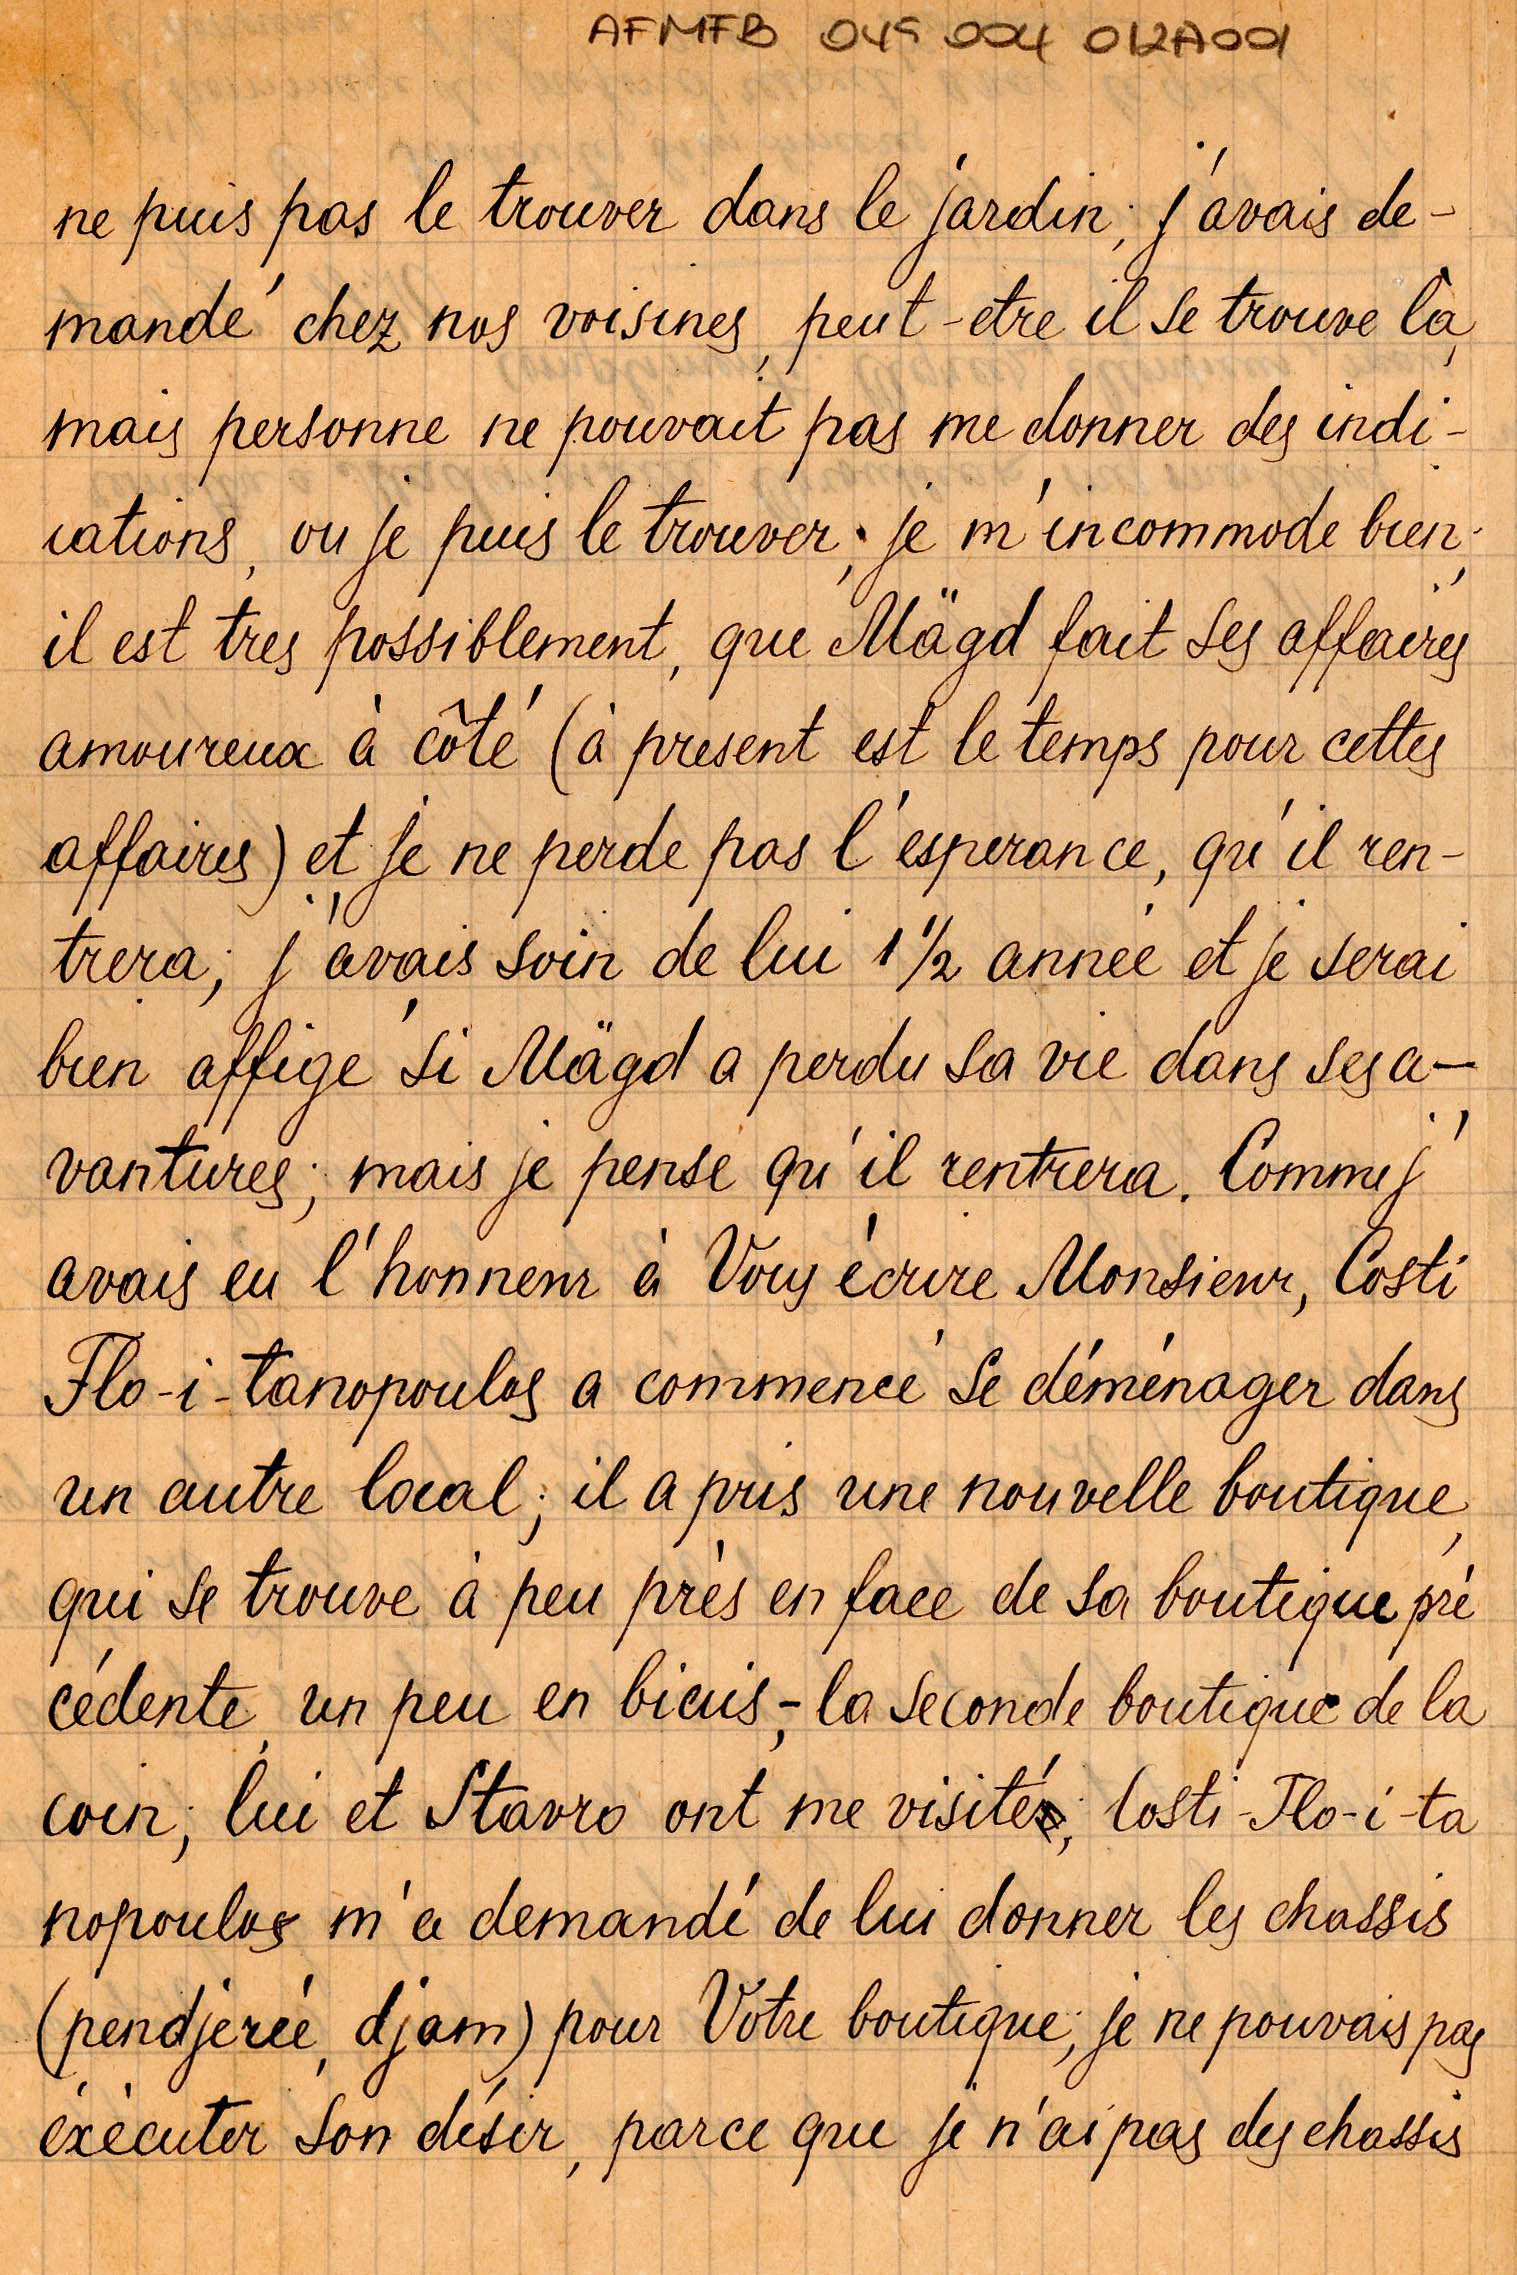 AFMFB 049 004 012A001
ne puis pas le trouver dans le jardin; j'avais de-
mandé chez nos voisines, peut-etre il se trouve là,
mais personne ne pouvait pas me donner des indi-
cations, ou je puis le trouver; je m'incommode bien;
il est tres possiblement, que Mägd fait ses affaires
amoureux à côté (à present est le temps pour cettes
affaires) et je ne perde pas l'esperance, qu'il ren-
trera; j'avais soin de lui 1 1/2 année et je serai
bien affigé si Mägd a perdu sa vie dans ses a-
vantures; mais je pense qu'il rentrera. Comme j'
avais eu l'honneur à Vous écrire Monsieur, Costi
Flo-i-tanopoulos a commencé se déménager dans
un autre local; il a pris une nouvelle boutique,
qui se trouve à peu près en face de sa boutique pré
cédente, un peu en biais,- la seconde boutique de la
coin; lui et Stavro ont me visité; Costi-Flo-i-ta
nopoulos m'a demandé de lui donner les chassis
(pendjereé, djam) pour Votre boutique; je ne pouvais pas
éxècuter son désir, parce que je n'ai pas des chassis